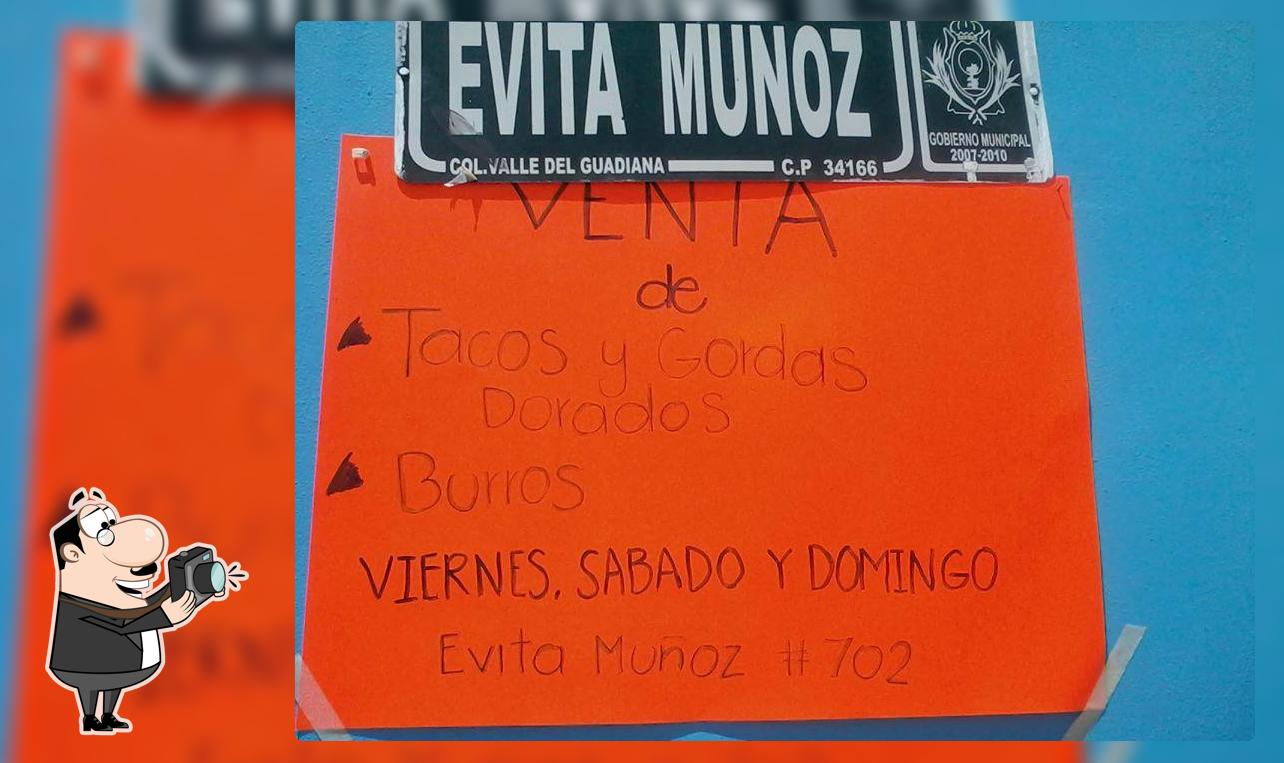 EVITA MUÑOZ
COL.VALLE DEL GUADIANA C.P 34166
GOBIERNO MUNICIPAL
2007-2010
VENTA
de
Tacos y Gordas
Dorados
Burros
VIERNES, SABADO Y DOMINGO
Evita Muñoz #702